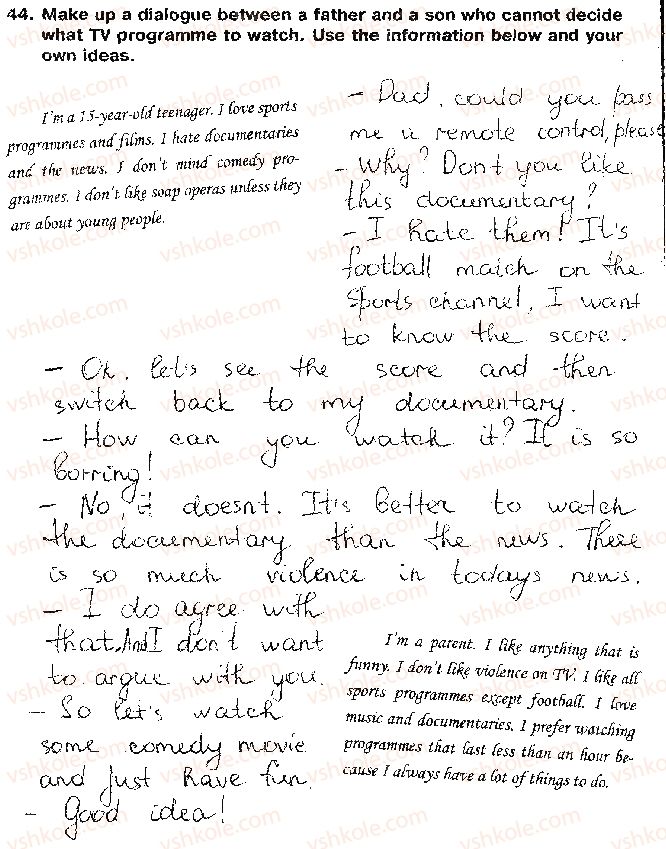 44. Make up a dialogue between a father and a son who cannot decide
what TV programme to watch. Use the information below and your
own ideas.
I'm a 15-year-old teenager. I love sports
programmes and films. I hate documentaries
and the news. I don't mind comedy pro-
grammes. I don't like soap operas unless they
are about young people.
– Dad, could you pass
me a remote control, please
– Why? Don't you like
this documentary?
– I hate them! It's
football match on the
sports channel, I want
to know the score.
– Ok, let's see the score and then
switch back to my documentary.
– How can you watch it? It is so
borring!
– No, it doesnt. It's better to watch
the documentary than the news. There
is so much violence in todays news.
– I do agree with
that. And I don't want
to argue with you.
– So let's watch
some comedy movie
and just have fun.
– Good idea!
I'm a parent. I like anything that is
funny. I don't like violence on TV. I like all
sports programmes except football. I love
music and documentaries. I prefer watching
programmes that last less than an hour be-
cause I always have a lot of things to do.
vshkole.com